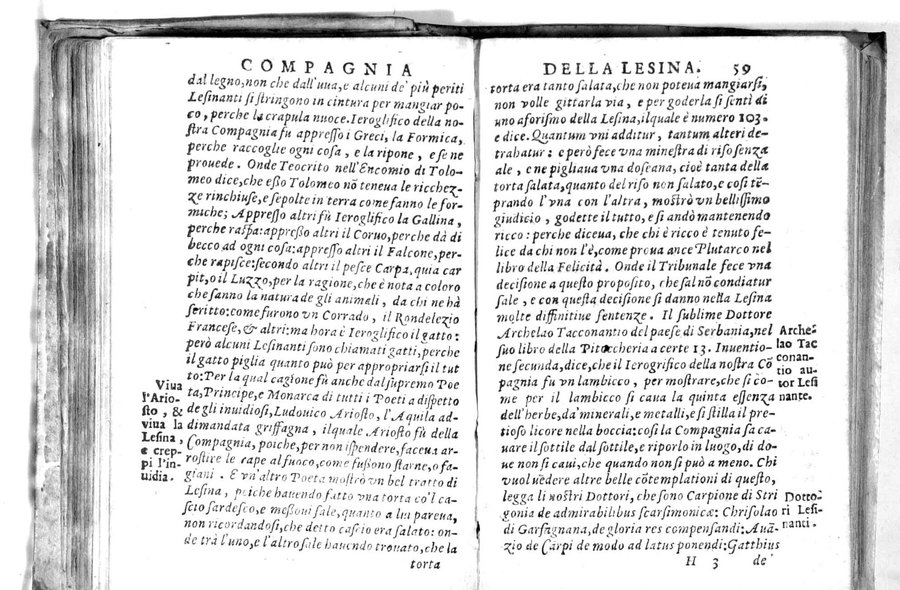 COMPAGNIA
dal legno, non che dall'uua, e alcuni de' più periti
Lesinanti si stringono in cintura per mangiar po-
co, perche la crapula nuoce. Ieroglifico della no-
stra Compagnia fu appresso i Greci, la Formica,
perche raccoglie ogni cosa, e la ripone, e se ne
prouede. Onde Teocrito nell'Encomio di Tolo-
meo dice, che esso Tolomeo nõ teneua le ricchez-
ze rinchiuse, e sepolte in terra come fanno le for-
miche; Appresso altri fù Ieroglifico la Gallina,
perche raspa: appresso altri il Coruo, perche dà di
becco ad ogni cosa: appresso altri il Falcone, per-
che rapisce: secondo altri il pesce Carpa, quia car
pit, o il Luzzo, per la ragione, che è nota a coloro
che sanno la natura de gli animali, da chi ne hà
scritto: come furono vn Corrado, il Rondelezio
Francese, & altri: ma hora è Ieroglifico il gatto:
però alcuni Lesinanti sono chiamati gatti, perche
il gatto piglia quanto può per appropriarsi il tut
to: Per la qual cagione fù anche dal supremo Poe
ta, Principe, e Monarca di tutti i Poeti a dispetto
de gli inuidiosi, Ludouico Ariosto, l'Aquila ad-
dimandata griffagna, il quale Ariosto fù della
Compagnia, poiche, per non ispendere, faceua ar-
rostire le rape al fuoco, come fussono starne, o fa-
giani. E vn altro Poeta mostrò vn bel tratto di
Lesina, poiche hauendo fatto vna torta co'l ca-
scio sardesco, e messoui sale, quanto a lui pareua,
non ricordandosi, che detto cascio era salato: on-
de trà l'uno, e l'altro sale hauendo trouato, che la
torta
Viua
l'Ario-
sto, &
viua la
Lesina,
e crep-
pi l'in-
uidia.
DELLA LESINA. 59
torta era tanto salata, che non poteua mangiarsi,
non volle gittarla via, e per goderla si sentì di
uno aforismo della Lesina, il quale è numero 103.
e dice. Quantum vni additur, tantum alteri de-
trahatur: e però fece vna minestra di riso senza
sale, e ne pigliaua vna doseana, cioè tanta della
torta salata, quanto del riso non salato, e cosi tẽ-
prando l'vna con l'altra, mostrò vn bellissimo
giudicio, godette il tutto, e si andò mantenendo
ricco: perche diceua, che chi è ricco è tenuto fe-
lice da chi non l'è, come proua ance Plutarco nel
libro della Felicità. Onde il Tribunale fece vna
decisione a questo proposito, che sal nõ condiatur
sale, e con questa decisione si danno nella Lesina
molte diffinitiue sentenze. Il sublime Dottore
Archelao Tacconantio del paese di Serbania, nel
suo libro della Pitoccheria a certe 13. Inuentio-
ne secunda, dice, che il Ierogrifico della nostra Cõ
pagnia fu vn lambicco, per mostrare, che si co-
me per il lambicco si caua la quinta essenza
dell'herbe, da' minerali, e metalli, e si stilla il pre-
tioso licore nella boccia: cosi la Compagnia fa ca-
uare il sottile dal sottile, e riporlo in luogo, di do-
ue non si caui, che quando non si può a meno. Chi
vuol uedere altre belle cõtemplationi di questo,
legga li nostri Dottori, che sono Carpione di Stri
gonia de admirabilibus scarsimonicæ: Chrisolao
di Garfagnana, de gloria res compensandi: Auã-
zio de Carpi de modo ad latus ponendi: Gatthius
H 3 de'
Arche-
lao Tac
conan-
tio au-
tor Lesi
nante.
Dotto-
ri Lesi-
nanti.